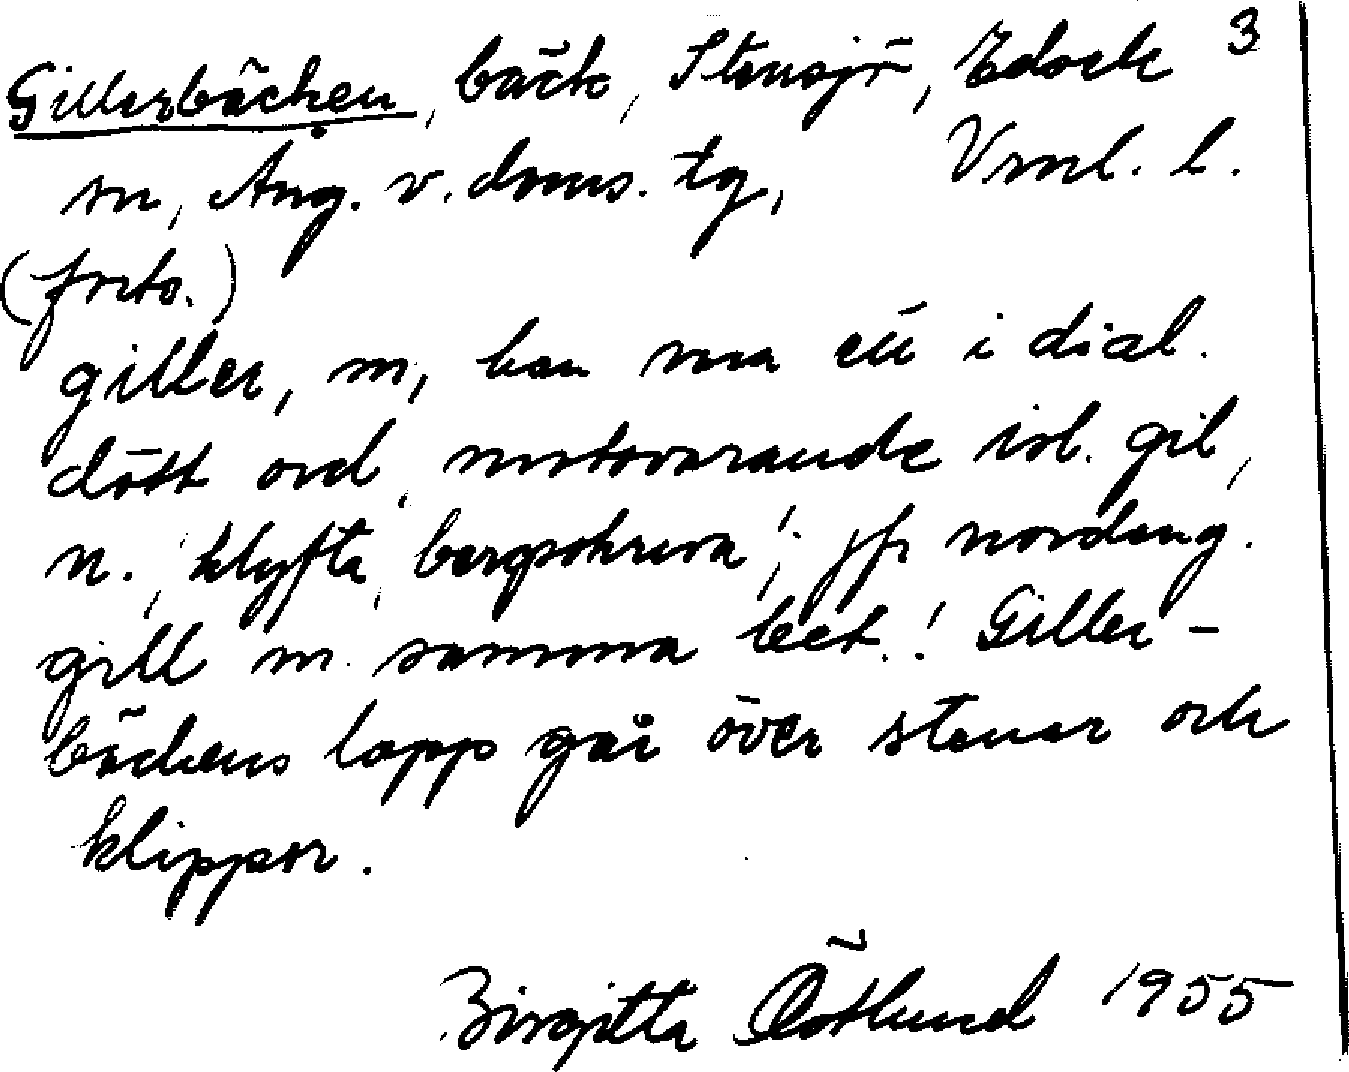 Gillerbäcken, bäck, Stensjö, Edsele 3
sn, Ång. v. doms. tg, Vrnl. l.
(forts.)
giller, m, kan vara ett i dial.
dött ord, motsvarande isl. gil,
n., 'klyfta, bergsskreva'; jfr nordeng.
gill m. samma bet.! Giller-
bäckens lopp går över stenar och
klippor.
Birgitta Östlund 1955